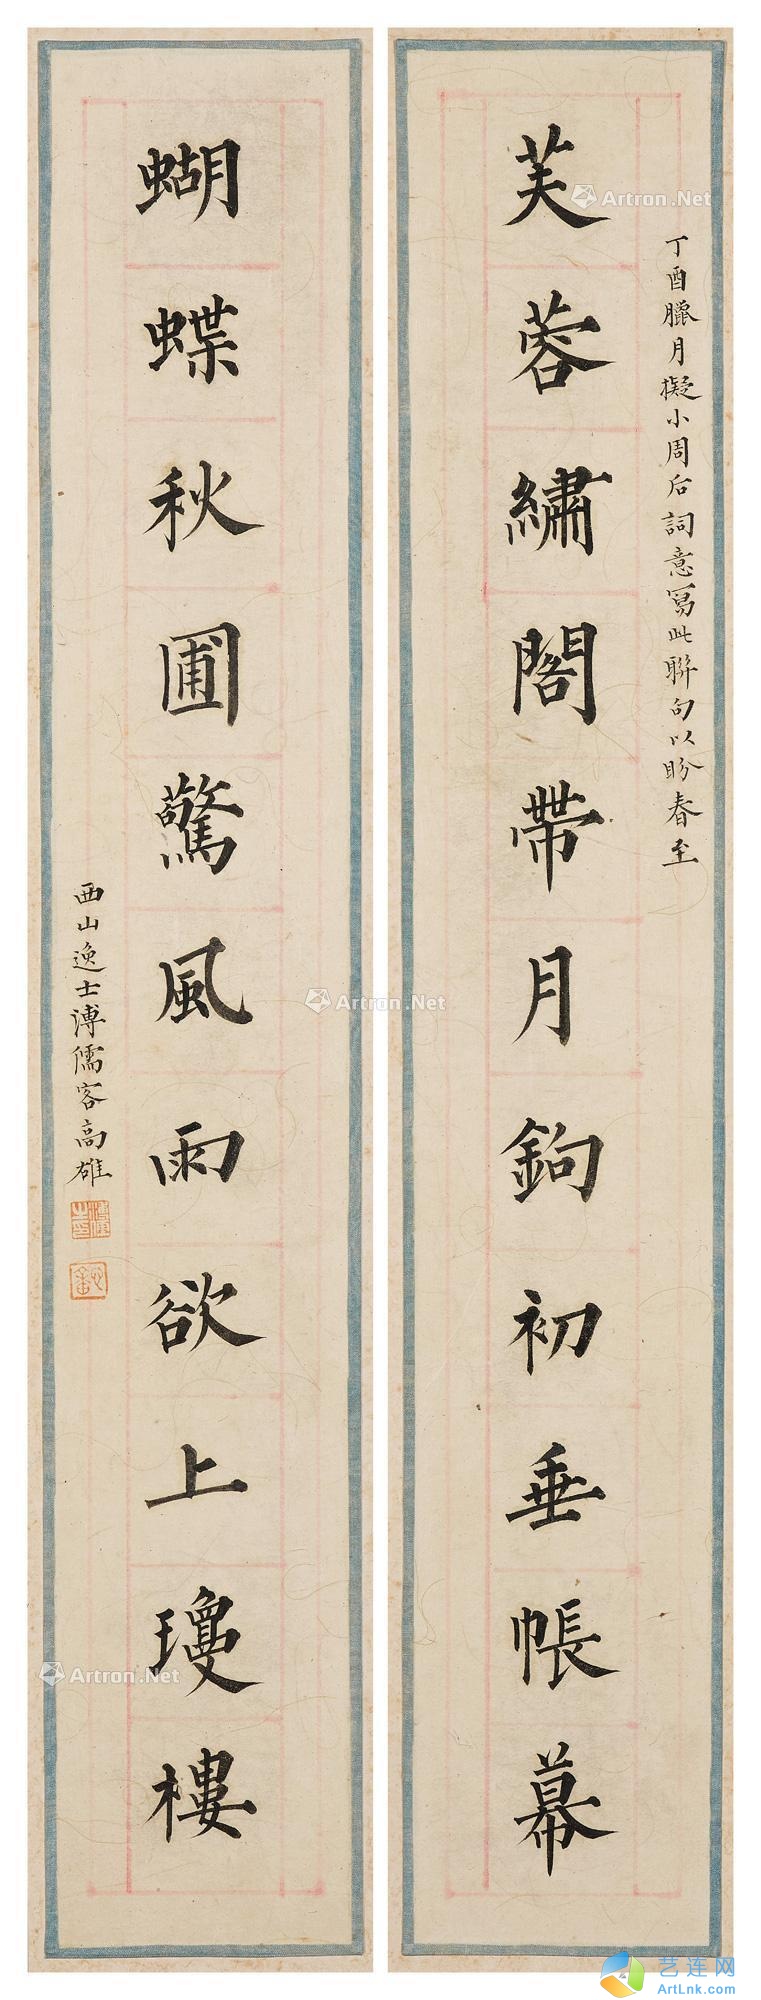 芙蓉繡閣帶月鉤初垂帳幕
丁酉臘月擬小周后詞意寫此聯句以盼春至
蝴蝶秋圃驚風雨欲上瓊樓
西山逸士溥儒客高雄
Artron.Net
Artron.Net
Artron.Net
艺连网
ArtLnk.com